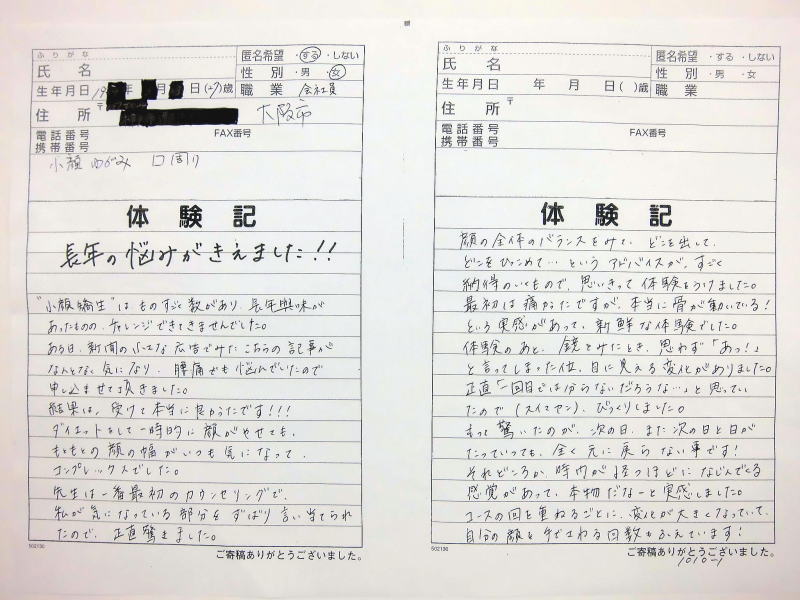 ふりがな
氏 名
匿名希望 ・する ・しない
性 別 ・男 ・女
生年月日 19 年 月 日 (27)歳
職 業 会社員
住 所 〒 大阪市
電話番号 FAX番号
携帯番号
小顔 ゆがみ 口周り
体験記
長年の悩みがきえました!!
"小顔矯生"はものすごく数があり、長年興味が
あったものの、チャレンジできてきませんでした。
ある日、新聞の小さな広告でみたこちらの記事が
なんとなく気になり、腰痛でも悩んでいたので
申し込ませて頂きました。
結果は、受けて本当に良かったです!!!
ダイエットをして一時的に顔がやせても、
もともとの顔の幅がいつも気になって、
コンプレックスでした。
先生は一番最初のカウンセリングで、
私が気になっている部分をずばり言い当てられ
たので、正直驚きました。
502130
ご寄稿ありがとうございました。
ふりがな
氏 名
匿名希望 ・する ・しない
性 別 ・男 ・女
生年月日 年 月 日( )歳
職 業
住 所 〒
電話番号 FAX番号
携帯番号
体験記
顔の全体のバランスをみて、どこを出して、
どこをひっこめて…というアドバイスが、すごく
納得のいくもので、思いきって体験をうけました。
最初は痛かったですが、本当に骨が動いている!
という実感があって、新鮮な体験でした。
体験のあと、鏡をみたとき、思わず「あっ!」
と言ってしまった位、目に見える変化がありました。
正直「1回目では分らないだろうな…」と思ってい
たので(スイマセン)、びっくりしました。
もっと驚いたのが、次の日、また次の日と日が
たっていっても、全く元に戻らない事です!
それどころか、時間が経つほどになじんでくる
感覚があって、本物だなーと実感しました。
コースの回を重ねるごとに、変化が大きくなっていて、
自分の顔を手でさわる回数もふえています!
502130
ご寄稿ありがとうございました。
1010-1